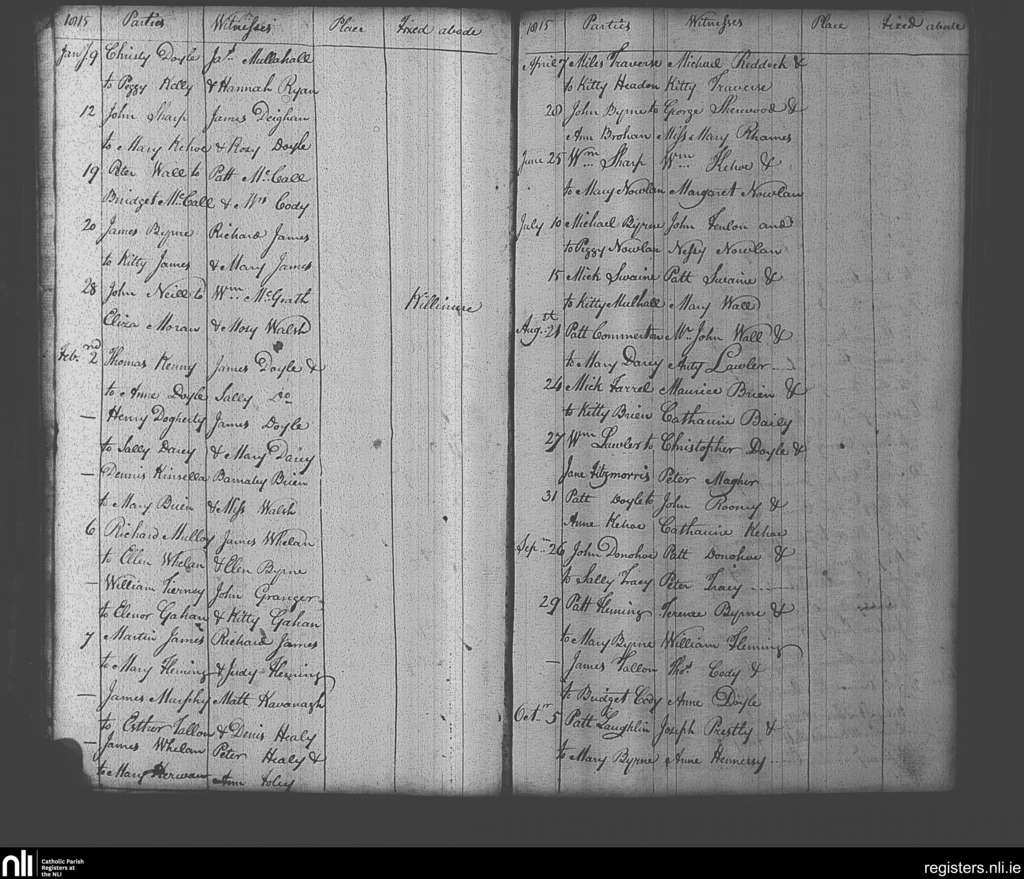 1815 Parties Witnesses Place Fixed abode
Jany 9 Christy Doyle Jas. Mullahall
to Peggy Kelly & Hannah Ryan
12 John Sharp James Deighan
to Mary Kehoe & Rosy Doyle
19 Peter Wall to Patt McCall
Bridget McCall & Mrs Cody
20 James Byrne Richard James
to Kitty James & Mary James
28 John Neill to Wm McGrath Killinure
Eliza Moran & Mosy Walsh
Feb. 2nd Thomas Kenny James Doyle &
to Anne Doyle Sally Do
— Henry Dogherty James Doyle
to Sally Darcy & Mary Darcy
— Dennis Kinsella Barnaby Brien
to Mary Brien & Miss Walsh
6 Richard Mulloy James Whelan
to Ellen Whelan & Ellen Byrne
— William Tierney John Granger
to Elenor Gahan & Kitty Gahan
7 Martin James Richard James
to Mary Fleming & Judy Fleming
— James Murphy Matt Kavanagh
to Esther Fallon & Denis Healy
— James Whelan Peter Healy &
to Mary Kerwan Ann Foley
1815 Parties Witnesses Place Fixed abode
April 7 Miles Traverse Michael Reddock &
to Kitty Headon Kitty Traverse
20 John Byrne to George Sherwood &
Ann Brohan Miss Mary Rhames
June 25 Wm Sharp Wm Kehoe &
to Mary Nowlan Margaret Nowlan
July 10 Michael Byrne John Fenlon and
to Peggy Nowlan Nessy Nowlan
15 Mick Swaine Patt Swaine &
to Kitty Mulhall Mary Wall
Aug. 21th Patt Commerton Mr John Wall &
to Mary Darcy Anty Lawler
24 Mick Farrel Maurice Brien &
to Kitty Brien Catharine Baily
27 Wm Lawler to Christopher Doyle &
Jane Fitzmorris Peter Magher
31 Patt Doyle to John Rooney &
Anne Kehoe Catharine Kehoe
Sep. 26 John Donohoe Patt Donohoe &
to Sally Tracy Peter Tracy
29 Patt Fleming Terence Byrne &
to Mary Byrne William Fleming
— James Fallon Thos. Cody &
to Bridget Cody Anne Doyle
Octr. 5 Patt Laughlin Joseph Prestly &
to Mary Byrne Anne Hennessy
nli Catholic Parish
Registers at
the NLI
registers.nli.ie